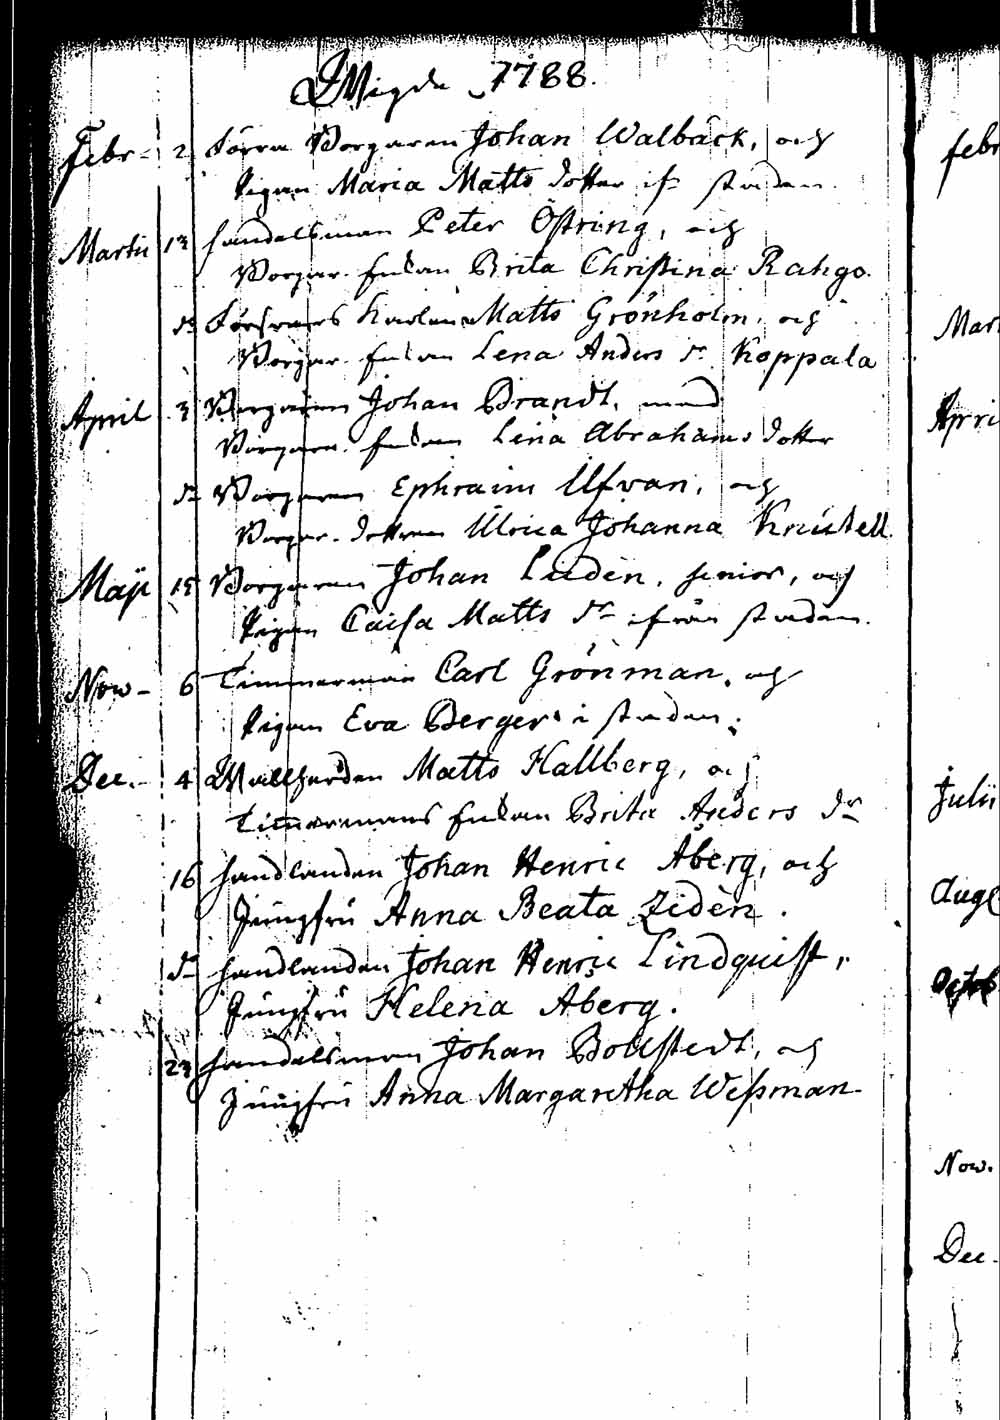 Wigde 1788.
Febr. 2 Förra Borgaren Johan Walbäck, och
Pigan Maria Matts dotter ifr staden.
Martii 13 Handelsman Peter Östring, och
Borgar. Enkan Brita Christina Rahgo.
do Försvars Karlen Matts Grönholm, och
Borgar. Enkan Lena Anders dr Koppala
April 3 Borgaren Johan Brandt, med
Borgare. Enkan Lena Abrahams dotter
do Borgaren Ephraim Ulfvan, och
Borgar. dottren Ulrica Johanna Knutell
Maji 15 Borgaren Johan Ludèn, senior, och
Pigan Caisa Matts dr ifrån staden.
Now- 6 Timmerman Carl Grönman, och
Pigan Eva Berger i staden.
Dec. 4 Wallherden Matts Hallberg, och
Timmermans Enkan Brita Anders dr
16 Handlanden Johan Henric Åberg, och
Jungfru Anna Beata Zidèn.
do Handlanden Johan Henric Lindquist,
Jungfru Helena Aberg.
23 Handelsman Johan Bollstedt, och
Jungfru Anna Margaretha Weßman
Febr
Mar
Apri
Julii
Aug
Octob
Now.
Dec.